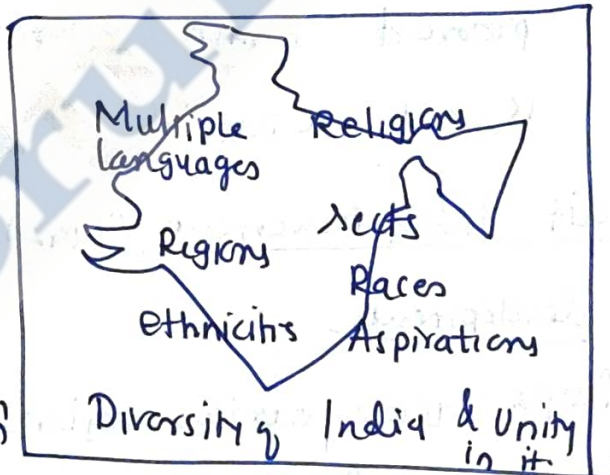 Multiple
languages
Religions
sects
Regions
Races
ethnicitis
Aspirations
Diversity of India & Unity
in it